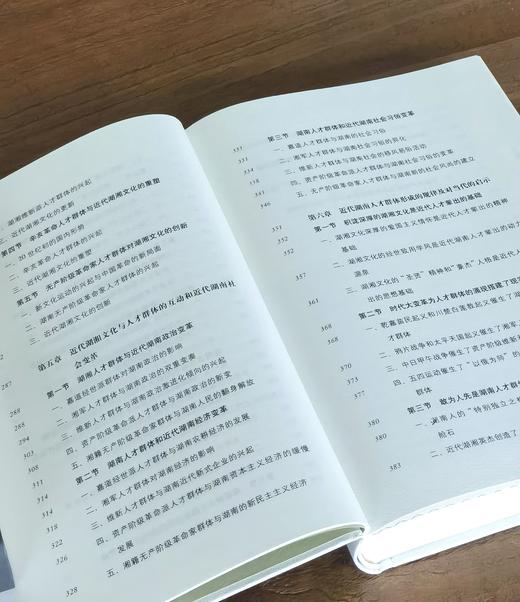 、湖湘维新派人才群体的兴起
三、近代湖湘文化的更新
第四节 辛亥革命人才群体与近代湖湘文化的重塑
一、20世纪初的国内形势
二、辛亥革命人才群体的兴起
三、近代湖湘文化的重塑
第五节 无产阶级革命家人才群体对湖湘文化的创新
一、新文化运动的兴起与中国革命的新局面
二、湖南无产阶级革命家人才群体的兴起
三、近代湖湘文化的创新
第五章 近代湖湘文化与人才群体的互动和近代湖南社
会变革
287
第一节 湖湘人才群体与近代湖南政治变革
287
一、嘉道经世派人才群体对湖南政治的影响
288
二、湘军人才群体与湖南政治的双重变奏
294
三、维新人才群体与湖南政治激进化倾向的兴起
300
四、资产阶级革命派人才群体与湖南政治的新变
303
五、湘籍无产阶级革命家群体与湖南人民的翻身解放
308
第二节 湖南人才群体和近代湖南经济变革
311
一、嘉道经世派人才群体与湖南农耕经济的发展
314
二、湘军人才群体对湖南经济的影响
314
三、维新人才群体与湖南近代新式企业的兴起
318
四、资产阶级革命派人才群体与湖南资本主义经济的缓慢
322
发展
326
五、湘籍无产阶级革命家群体与湖南的新民主主义经济
328
第三节 湖南人才群体和近代湖南社会习俗变革
331
一、嘉道人才群体与湖南的社会习俗
331
二、湘军人才群体与湖南社会习俗的异化
333
三、维新人才群体与湖南社会的移风易俗活动
337
四、资产阶级革命派人才群体与湖南社会习俗的变革
341
五、无产阶级革命家人才群体与湖南新的社会风尚的建立
345
第六章 近代湖南人才群体形成的规律及对当代的启示
352
第一节 积淀深厚的湖湘文化是近代人才辈出的基础
352
一、湖湘文化深厚的爱国主义情怀是近代人才辈出的精神
基础
二、湖湘文化的经世致用学风是近代湖南人才辈出的动力
357
源泉
三、湖湘文化的“圣贤”精神和“豪杰”人格是近代人
出的思想基础
第二节 时代大变革为人才群体的涌现提供了
368
一、乾嘉苗民起义和川楚白莲教起义催生了
368
才群体
二、鸦片战争和太平天国起义催生了湘军
三、中日甲午战争催生了资产阶级维新
四、五四运动催生了“以俄为师”的
群体
第三节 敢为人先是湖南人才群
380
一、湖南人的“特别独立之
380
舱石
二、近代湖湘英杰创造了
383